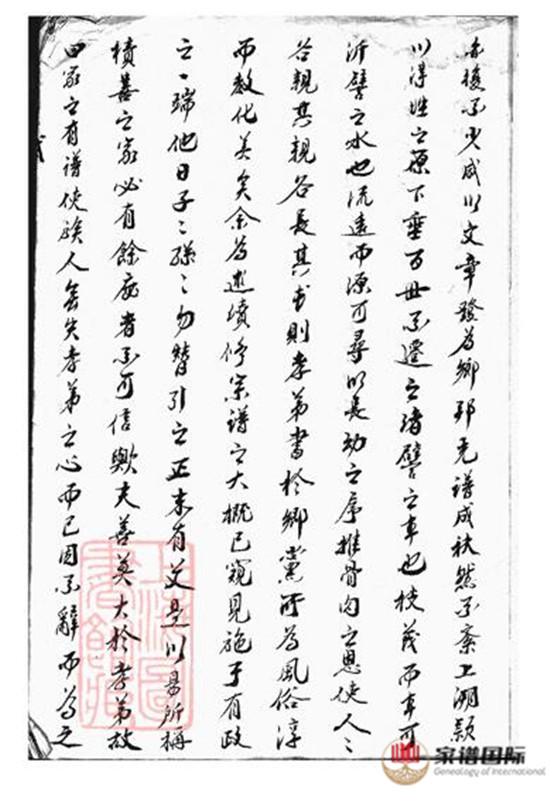 後不少咸以文章發為鄉邦光譜成秩然不紊上溯潁
川得姓之源下垂百世不遷之緒譬之木也枝茂而本可
沂譬之水也流遠而源可尋以長幼之序推骨肉之恩使人〻
各親其親各長其長則孝弟書於鄉黨所為風俗淳
而教化美矣余為述續修宗譜之大概已窺見施于有政
之一端他日子〻孫〻勿替引之正未有艾是以易所稱
積善之家必有餘慶者不可信歟夫善莫大於孝弟故
曰家之有譜使族人無失孝弟之心而已因不辭而為之
上海圖書館藏
家谱国际
Genealogy of International